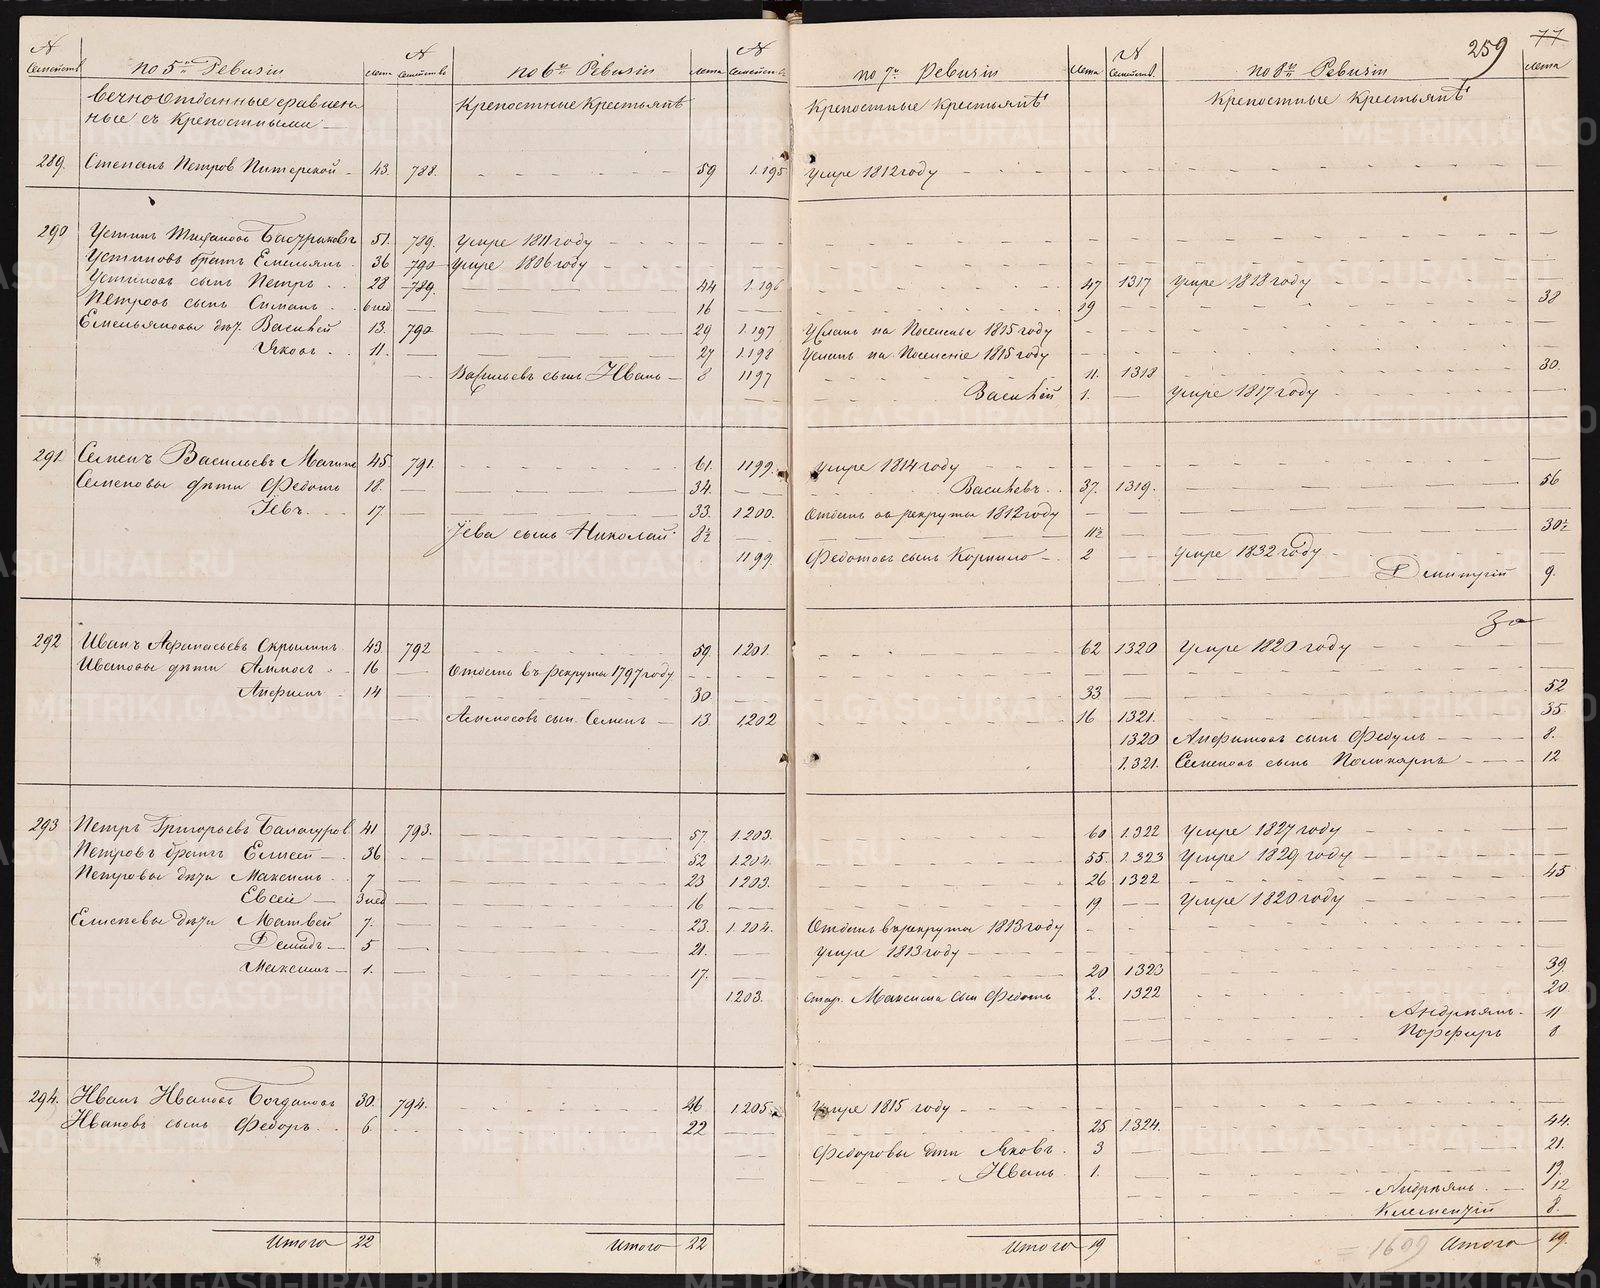 № Семейств. по 5й Ревизии лета № Семейств по 6й Ревизии лета № Семейств. по 7й Ревизии лета № Семейств. по 8й Ревизии 259 77 лета
Вечноотданные сравнен Крепостные Крестьянѣ Крепостные Крестьянѣ Крепостные Крестьянѣ
ные съ Крепостными
289. Степанъ Петров Питерской 43. 788. 59 1.195 умре 1812 году
290 Устинъ 51. 789. умре 1811 году
Устиновъ братъ Емельянъ 36 790 умре 1806 году
Устиновъ сынъ Петръ 28 789. 44 1.196 47 1317 умре 1818 году
Петровъ сынъ Симанъ 6 нед 16 19 38
Емельяновы дѣт. Василей 13. 790 29 1.197 Усланъ на Поселенье 1815 году
Яковъ 11. 27 1.198 Усланъ на Поселение 1815 году
Васильевъ сынъ Иванъ 8 1197 11. 1318 30.
Василей 1. умре 1817 году
291. Семенъ Васильевъ 45. 791. 61. 1199. умре 1814 году
Семеновы дѣти Федотъ 18. 34. Васильевъ 37. 1319. 56
Iевъ 17. 33. 1200. Отданъ въ рекруты 1812 году
Iева сынъ Николай 8½ 11½ 30½
1199. Федотовъ сынъ Корнило 2 умре 1832 году
Дмитрiй 9.
За
292 Иванъ Афанасьевъ 43 792 59. 1201. 62 1320 Умре 1820 году
Ивановы дѣти Аммосъ 16 Отданъ въ рекруты 1797 году
Анфимъ 14 30 33 52
Аммосовъ сын. Семенъ 13. 1202 16 1321. 35
1320 Анфимовъ сынъ Федулъ 8.
1.321. Семеновъ сынъ Поликарпъ 12
293 Петръ Григорьевъ Балагуров 41 793. 57. 1.203. 60 1.322 Умре 1827 году
Петровъ братъ Елисей 36 52 1.204. 55. 1.323 Умре 1829 году
Петровы дѣти Максимъ 7 23 1203. 26 1322 45
Евсей 3 нед 16 19 Умре 1820 году
Елисѣевы дѣти Матвей 7. 23. 1.204. Отданъ в рекруты 1813 году
Демидъ 5 21. умре 1813 году
Максимъ 1. 17. 20 1323 39.
1.203. стар. Максима сын Федотъ 2. 1322 20.
Андреянъ 11
Порфиръ 8
294. Иванъ Ивановъ Богдановъ 30. 794. 46 1.205. Умре 1815 году
Ивановъ сынъ Федоръ 6. 22 25 1.324. 44.
Федоровы дѣти Яковъ 3 21.
Иванъ 1. 19.
Андреянъ 12
Климентiй 8.
Итого 22 Итого 22 Итого 19 = 1699 Итого 19.
METRIKI.GASO-URAL.RU